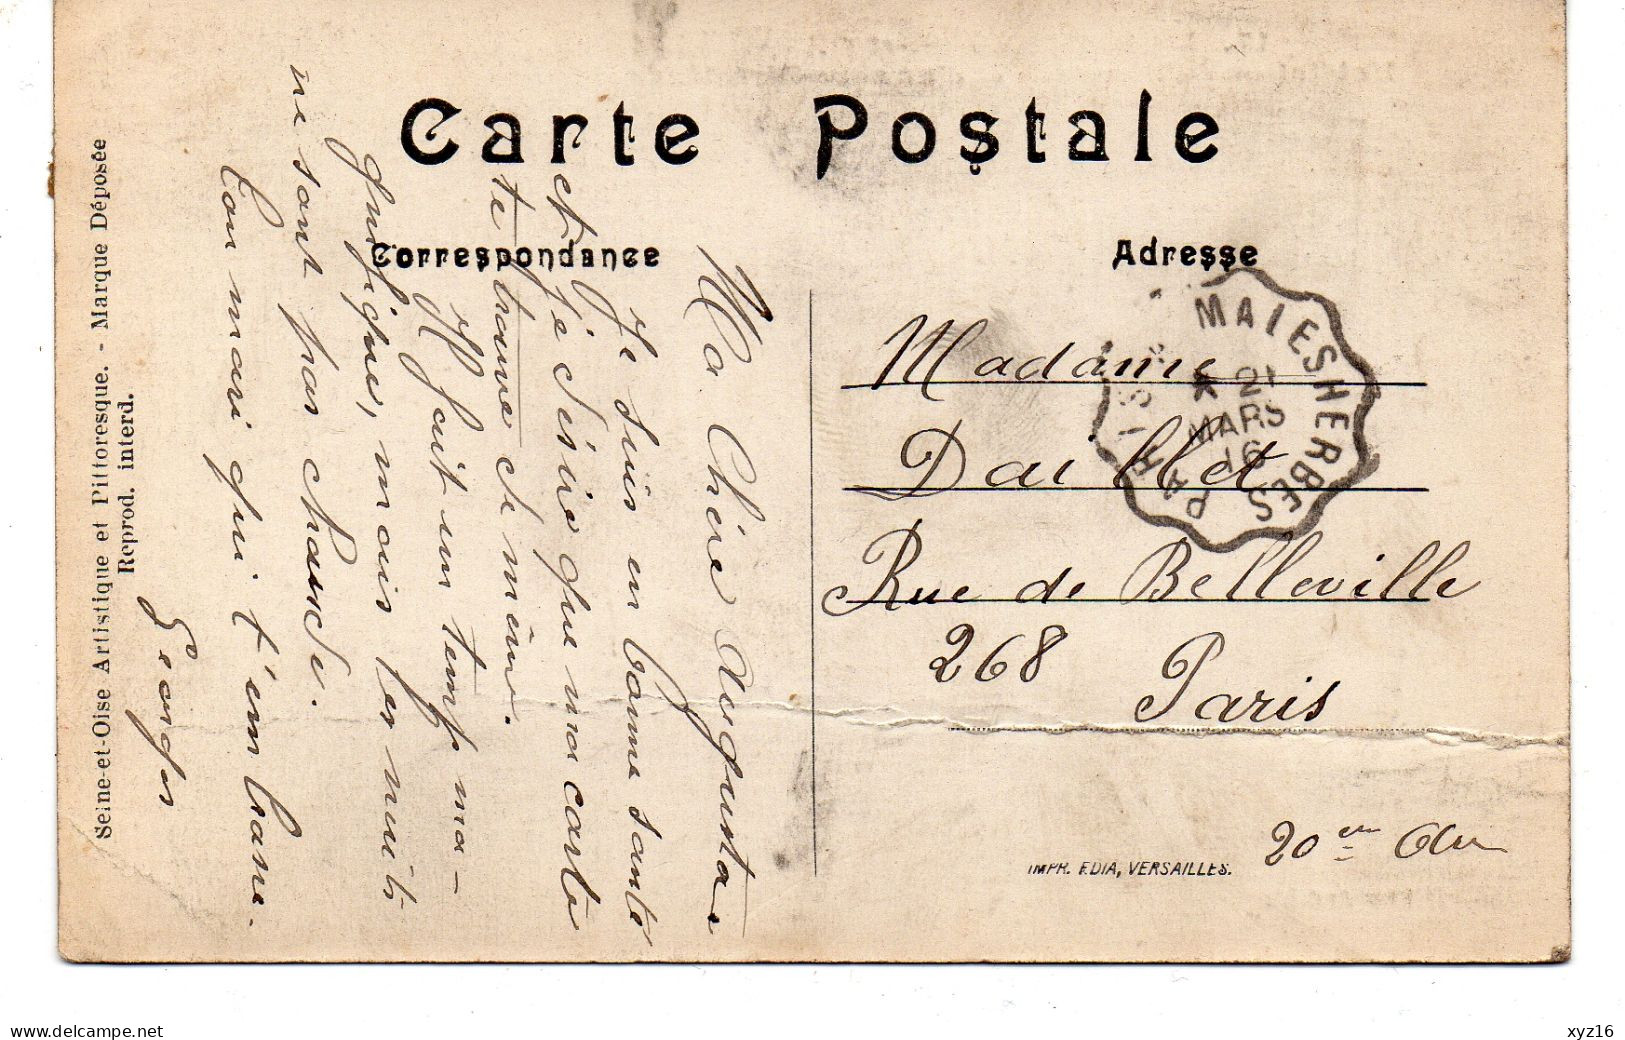 Carte Postale
Correspondance
Adresse
Ma Chère Augusta
Je suis en bonne santé
et je désire que ma carte
te trouve de même.
Il fait un temps ma-
gnifique, mais les nuits
ne sont pas chaudes.
Ton mari qui t'embrasse.
Georges
Madame
Daillet
Rue de Belleville
268
Paris
20em
MALESHERBES
21
MARS
16
PARIS
IMPR. EDIA, VERSAILLES.
Seine-et-Oise Artistique et Pittoresque. - Marque Déposée
Reprod. interd.
www.delcampe.net
xyz16